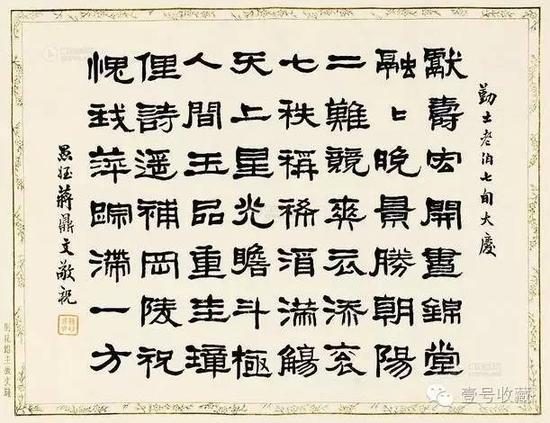 勤士老伯七旬大慶
獻壽宏開晝錦堂
融〻晚景勝朝陽
二難競爽衣添袞
七秩稱稀酒滿觴
天上星光瞻斗極
人間玉品重圭璋
俚詩遥補岡陵祝
愧我萍踪滯一方
愚侄蔣鼎文敬祝
壹号收藏